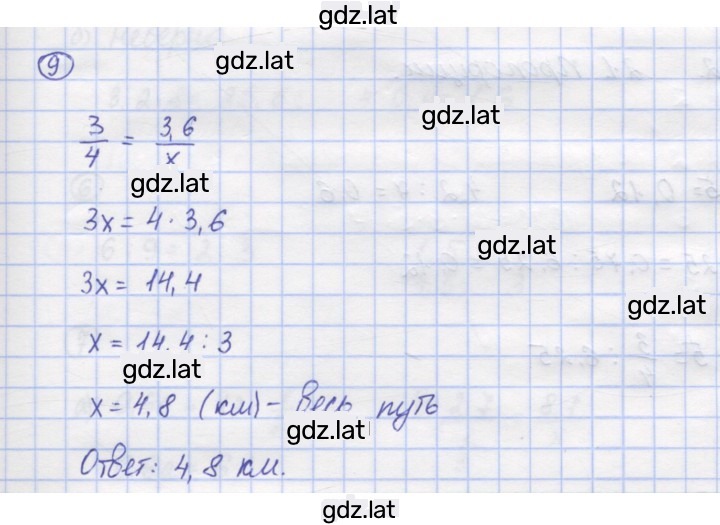 gdz.lat
9
gdz.lat
gdz.lat
3/4 = 3,6/x
gdz.lat
3x = 4 · 3,6
gdz.lat
3x = 14,4
gdz.lat
x = 14.4 : 3
gdz.lat
x = 4,8 (км) – весь путь
gdz.lat
Ответ: 4,8 км.
gdz.lat